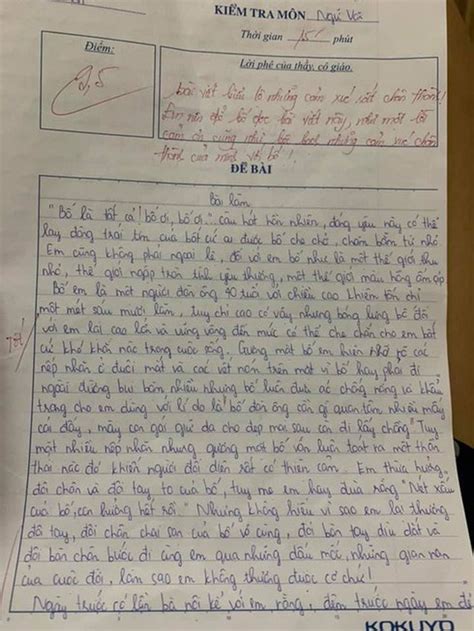 KIỂM TRA MÔN Ngữ Văn
Thời gian 15 phút
Điểm:
Lời phê của thầy, cô giáo.
Bài viết biểu lộ những cảm xúc rất chân thành!
Em nên gửi bố đọc bài viết này, như một lời
cảm ơn cũng như bộc bạch những cảm xúc chân
thành của mình với bố!
ĐỀ BÀI
Bài làm
"Bố là tất cả! bố ơi, bố ơi". câu hát hồn nhiên, đáng yêu này có thể
lay động trái tim của bất cứ ai được bố che chở, chăm bẵm từ nhỏ
Em cũng không phải ngoại lệ, đối với em bố như là một thế giới thu
nhỏ, thế giới ngập tràn tình yêu thương, một thế giới màu hồng ấm áp
Bố em là một người đàn ông 40 tuổi với chiều cao khiêm tốn chỉ
một mét sáu mươi lăm, tuy chỉ cao có vậy nhưng bóng lưng bố đối
với em lại cao lớn và vững vàng đến mức có thể che chắn cho em bất
cứ khó khăn nào trong cuộc sống. Gương mặt bố em hiện nhờ rõ các
nếp nhăn ở đuôi mắt và các vết nám trên mặt vì bố hay phải đi
ngoài đường bụi bặm nhiều nhưng bố luôn đưa áo chống nắng và khẩu
trang cho em dùng với lí do là "bố đàn ông cần gì quan tâm nhiều mấy
cái đấy, mày con gái giữ da cho đẹp mai sau còn đi lấy chồng" Tuy
mặt nhiều nếp nhăn nhưng gương mặt bố vẫn luôn toát ra một thần
thái nào đó khiến người đối diện rất có thiện cảm. Em thừa hưởng
đôi chân và đôi tay to của bố, tuy mẹ em hay đùa rằng "Nét xấu
của bố, con hưởng hết rồi" Nhưng không hiểu vì sao em lại thương
đôi tay, đôi chân chai sạn của bố vô cùng, đôi bàn tay dìu dắt và
đôi bàn chân bước đi cùng em qua những dấu mốc, những gian nan
của cuộc đời, làm sao em không thương được cơ chứ!
Ngày trước có lần bà nội kể với em rằng, đêm trước ngày em đẻ
KOKUYO